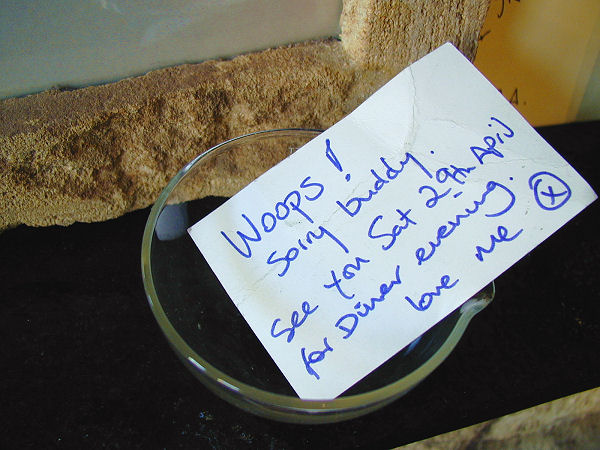 WOOPS!
Sorry buddy.
See you Sat 29th April
for Dinner evening.
love me X
A.